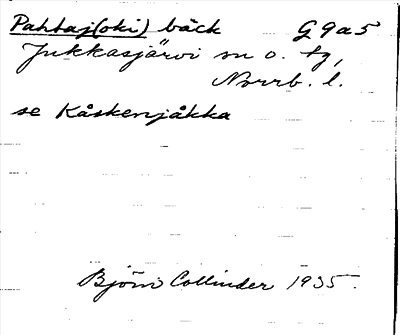 Pahtaj(oki) bäck G9a5
Jukkasjärvi sn o. tg,
Norrb. l.
se Kåskenjåkka
Björn Collinder 1935.